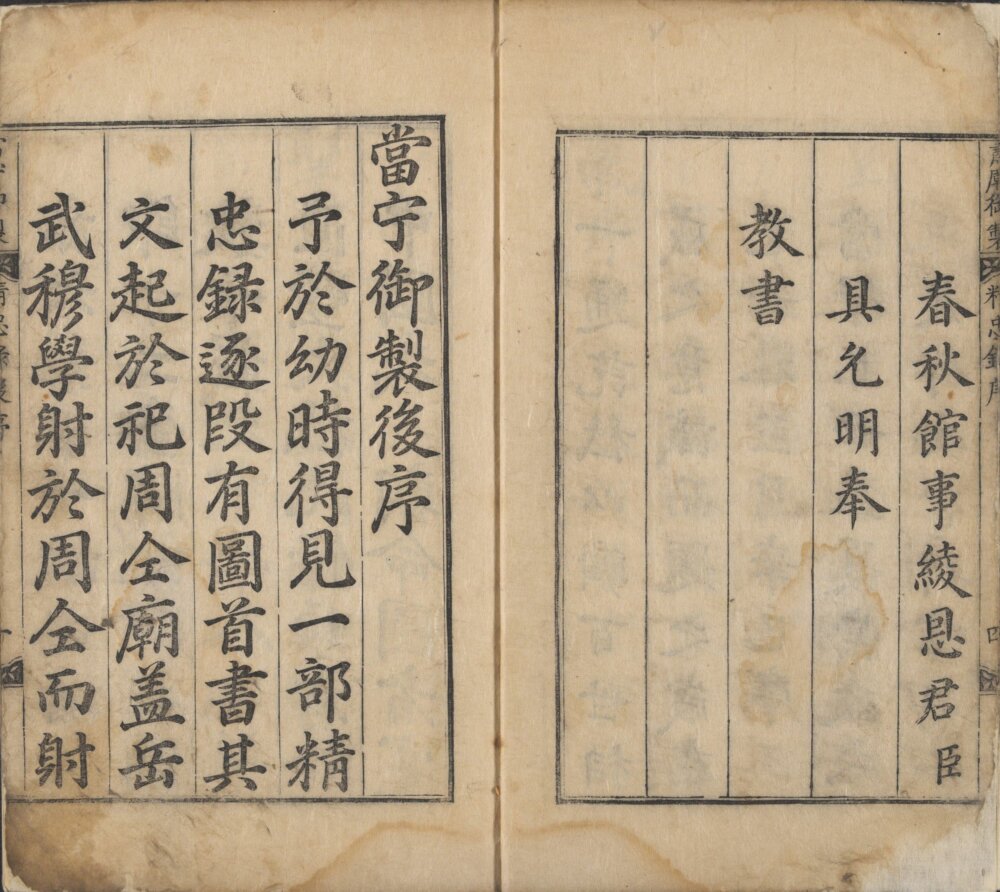 春秋館事綾恩君臣
具允明奉
教書
當宁御製後序
予於幼時得見一部精
忠録逐段有圖首書其
文起於祀周仝廟盖岳
武穆學射於周仝而射